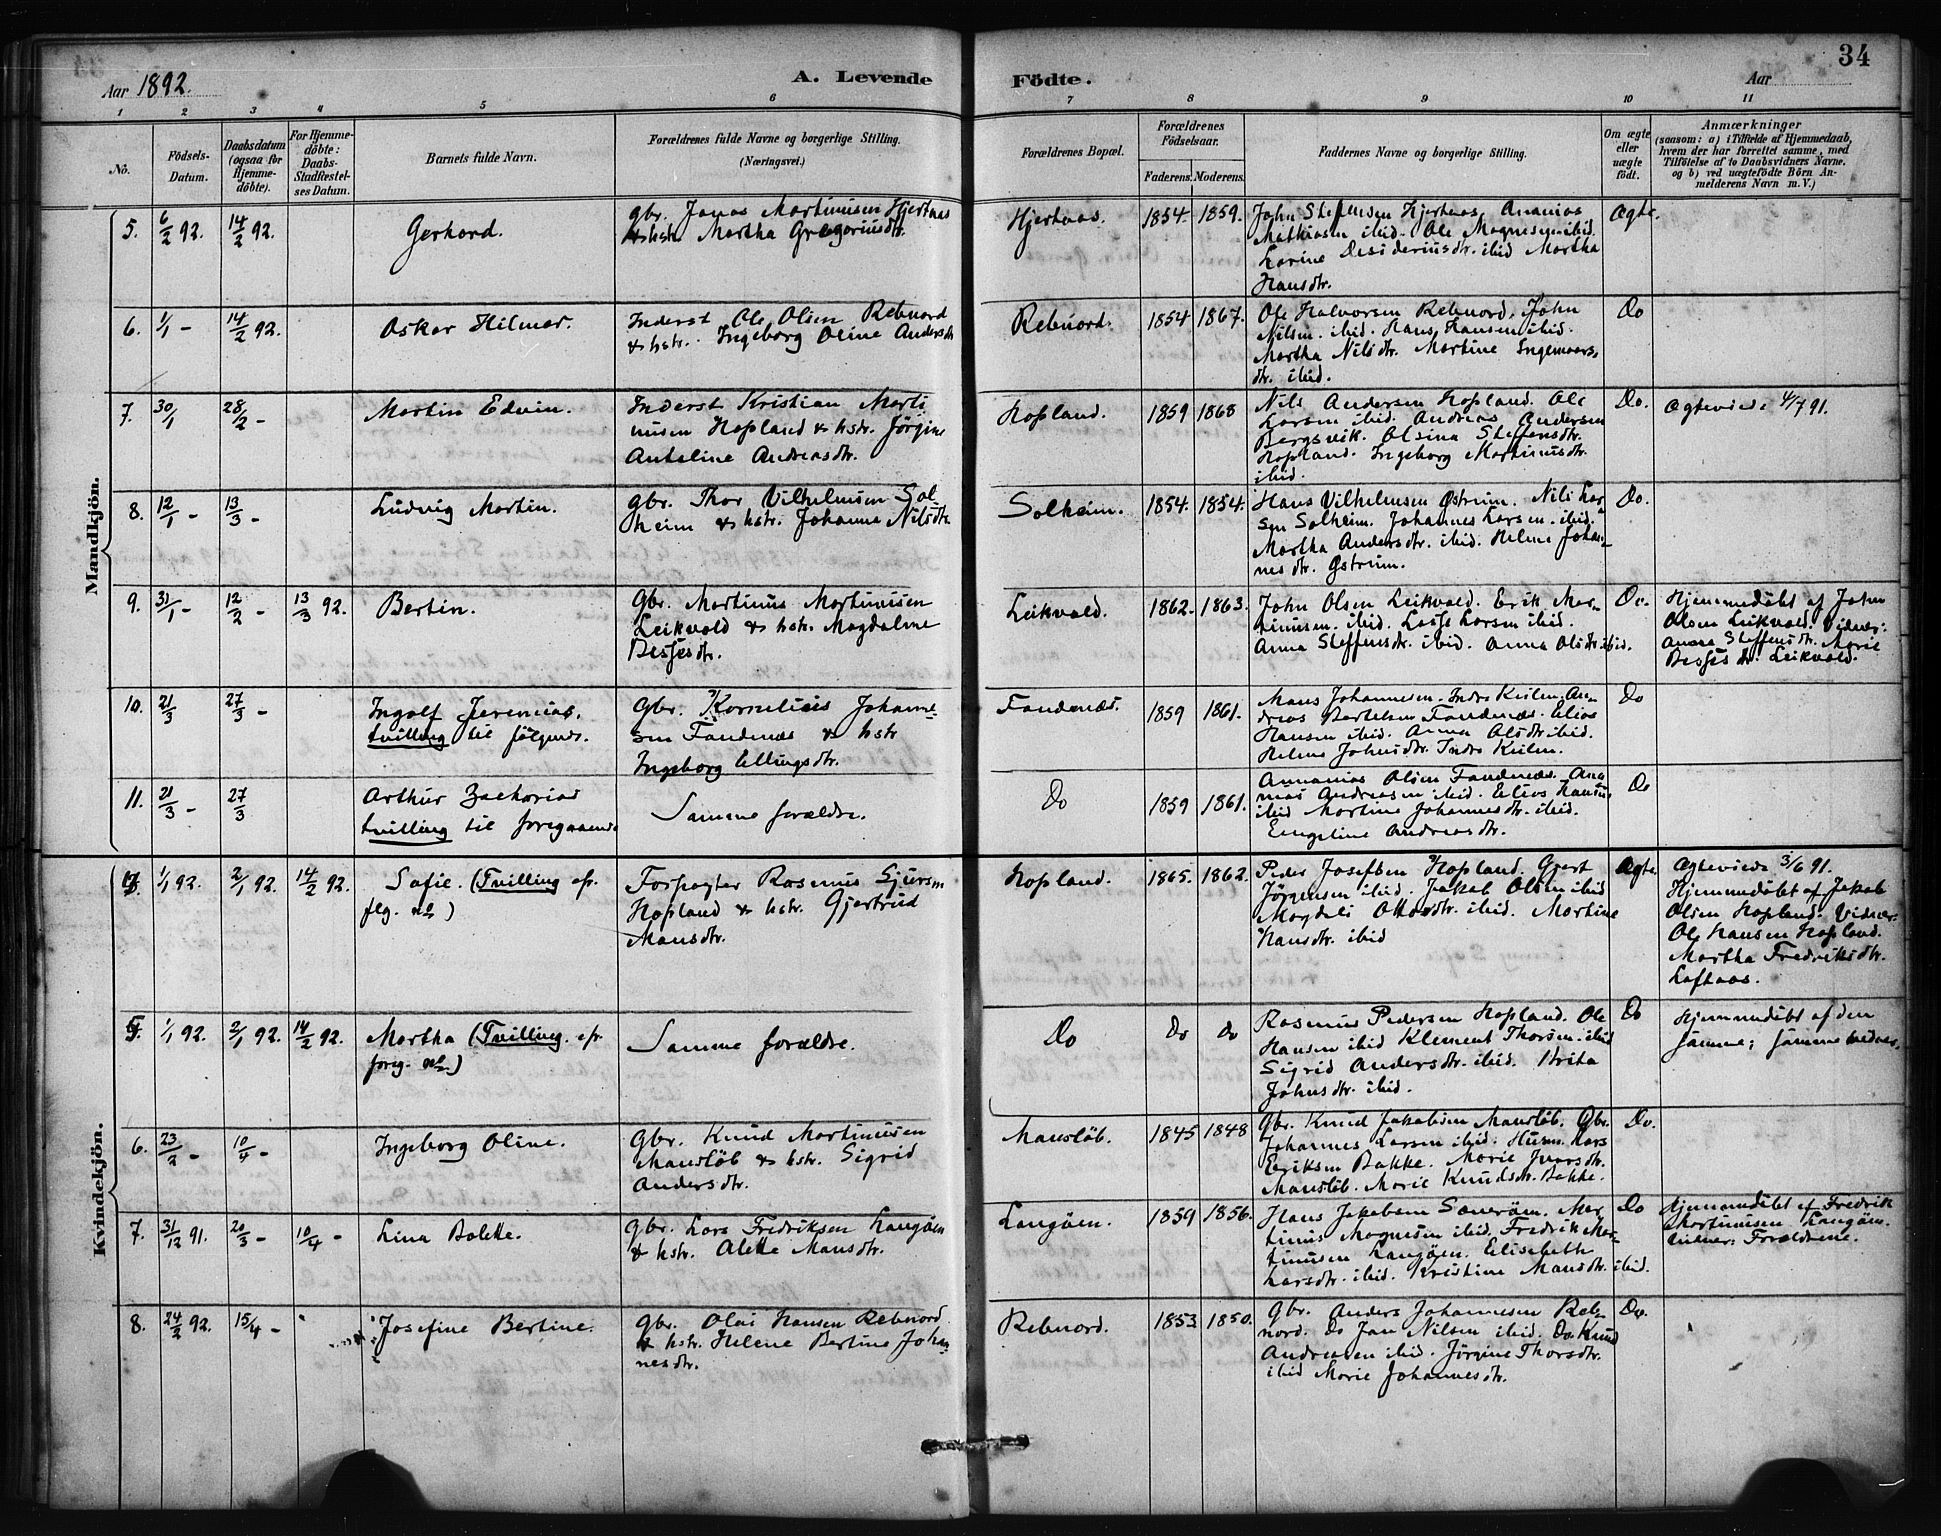 34
Aar 1892.
A. Levende Födte.
Aar
1 2 3 4 5 6 7 8 9 10 11
No.
Födsels-Datum.
Daabsdatum (ogsaa for Hjemmedöbte).
For Hjemmedöbte: Daabs-Stadfæstelses Datum.
Barnets fulde Navn.
Forældrenes fulde Navne og borgerlige Stilling.
(Næringsvei.)
Forældrenes Bopæl.
Forældrenes Födselsaar.
Faderens. Moderens.
Faddernes Navne og borgerlige Stilling.
Om ægte eller uægte födt.
Anmærkninger
(saasom: a) i Tilfælde af Hjemmedaab, hvem der har forrettet samme, med Tilföielse af to Daabsvidners Navne, og b) ved uægtefödte Börn Anmelderens Navn m. V.)
Mandkjön.
5. 6/2 92. 14/2 92. Gerhard.
Gbr. Jonas Martinusen Hjertnaas
& hstr. Martha Gregoriusdtr.
Hjertaas. 1854. 1859.
John Steffensen Hjertaas. Ananias
Mathiasen ibid. Ole Magnesen ibid.
Larine Desideriusdtr. ibid Martha
Hansdtr.
Ægte.
6. 1/1 - 14/2 92. Oskar Hilmar.
Inderst Ole Olsen Rebnord
& hstr. Ingeborg Oline Andersdtr
Rebnord. 1854 1867.
Ole Halvorsen Rebnord. John
Nilsen. ibid. Hans Hansen ibid.
Martha Nilsdtr. Martine Ingemars-
dtr. ibid.
Do
7. 30/1 28/2 - Martin Edvin.
Inderst Kristian Marti
nusen Hopland & hstr. Jörgine
Antoline Andreasdtr.
Hopland. 1859 1868
Nils Andersen Hopland. Ole
Larsen ibid. Andreas Andersen
Bergsvik. Olsina Steffensdtr.
Hopland. Ingeborg Martinusdtr.
ibid.
Do.
Ægteviede 4/7 91.
8. 12/1 - 13/3 - Ludvig Martin.
Gbr. Thor Vilhelmsen Sol-
heim & hstr. Johanna Nilsdtr.
Solheim. 1854. 1854.
Hans Vilhelmsen Østrum. Nils Lar-
sen Solheim. Johannes Larsen. ibid.
Martha Andersdtr. ibid. Helene Johan-
nesdtr. Østrum.
Do.
9. 31/1 - 12/2 - 13/3 92. Bertin.
Gbr. Martinus Martinusen
Leikvold & hstr. Magdaline
Desjesdtr.
Leikvold. 1862. 1863.
John Olsen Leikvold. Erik Mar-
tinusen. ibid. Lasse Larsen ibid.
Anna Steffensdtr. ibid. Anna Olsdtr. ibid.
Do.
Hjemmedöbt af John
Olsen Leikvold. Vidner:
Anna Steffensdtr. Marie
Desjesdtr. Leikvold.
10. 21/3 27/3 - Ingolf Jeremias.
tvilling til fölgende.
Gbr. Kornelius Johanne-
sen Fandenæs & hstr
Ingeborg Ellingsdtr.
Fandenæs. 1859 1861.
Mans Johannesen. Indre Keilen. An-
dreas Bertelsen Fandenæs. Elias
Hansen ibid. Anna Olsdtr. ibid.
Helene Johnsdtr. Indre Keilen.
Do
11. 21/3 - 27/3 Arthur Zacharias
tvilling til foregaaende
Samme forældre.
Do 1859 1861.
Annanias Olsen Fandenæs. Ana
nias Andreasen ibid. Elias Hansen
ibid Martine Johannesdtr. ibid.
Engeline Andreasdtr.
Do
Kvindekjön.
1/1 92. 2/1 92. 14/2 92. Sofie. (Tvilling efr.
flg. no)
Forpagter Rasmus Sjursen
Hopland & hstr. Gjertrud
Mansdtr.
Hopland. 1865. 1862.
Peder Josefsen Hopland. Gjert
Jörgensen ibid. Jakob Olsen ibid
Magdeli Ottosdtr. ibid. Martine
Hansdtr. ibid
Ægte.
Ægteviede 3/6 91.
Hjemmedöbt af Jakob
Olsen Hopland. Vidner:
Ole Hansen Hopland.
Martha Fredriksdtr.
Loftaas.
5. 1/1 92. 2/1 92. 14/2 92. Martha (Tvilling. efr.
foreg. no.)
Samme forældre.
Do Do Do
Rasmus Pedersen Hopland. Ole
Hansen ibid Klement Thorsen. ibid
Sigrid Andersdtr. ibid. Brita
Johnsdtr. ibid.
Do
Hjemmedöbt af den
samme; samme vidner.
6. 23/2 - 10/4 - Ingeborg Oline.
Gbr. Knud Martinusen
Manslöb & hstr. Sigrid
Andersdtr.
Manslöb. 1845 1848
Gbr. Knud Jakobsen Manslöb. Gbr.
Johannes Larsen ibid. Husm. Lars
Eriksen Bakke. Marie Ivarsdtr.
Manslöb. Marie Knudsdtr. Bakke.
Do.
7. 31/12 91. 20/3 - 10/4 - Lina Bolette.
Gbr. Lars Fredriksen Langöen
& hstr. Alette Mansdtr.
Langöen. 1859 1856.
Hans Jakobsen Saneröen. Mar
tinus Magnesen ibid. Fredrik Mar-
tinusen Langöen. Elisabeth
Larsdtr. ibid. Kristine Mansdtr. ibid.
Do
Hjemmedöbt af Fredrik
Martinusen Langöen.
Vidner: Forældrene.
8. 24/2 92. 15/4 - Josefine Bertine.
Gbr. Olai Hansen Rebnord
& hstr. Helene Bertine Johan-
nesdtr.
Rebnord. 1853 1850.
Gbr. Anders Johannesen Reb-
nord. Do Jan Nilsen ibid. Do. Knud
Andreasen ibid. Jörgine Thorsdtr.
ibid Marie Johannesdtr.
Do.